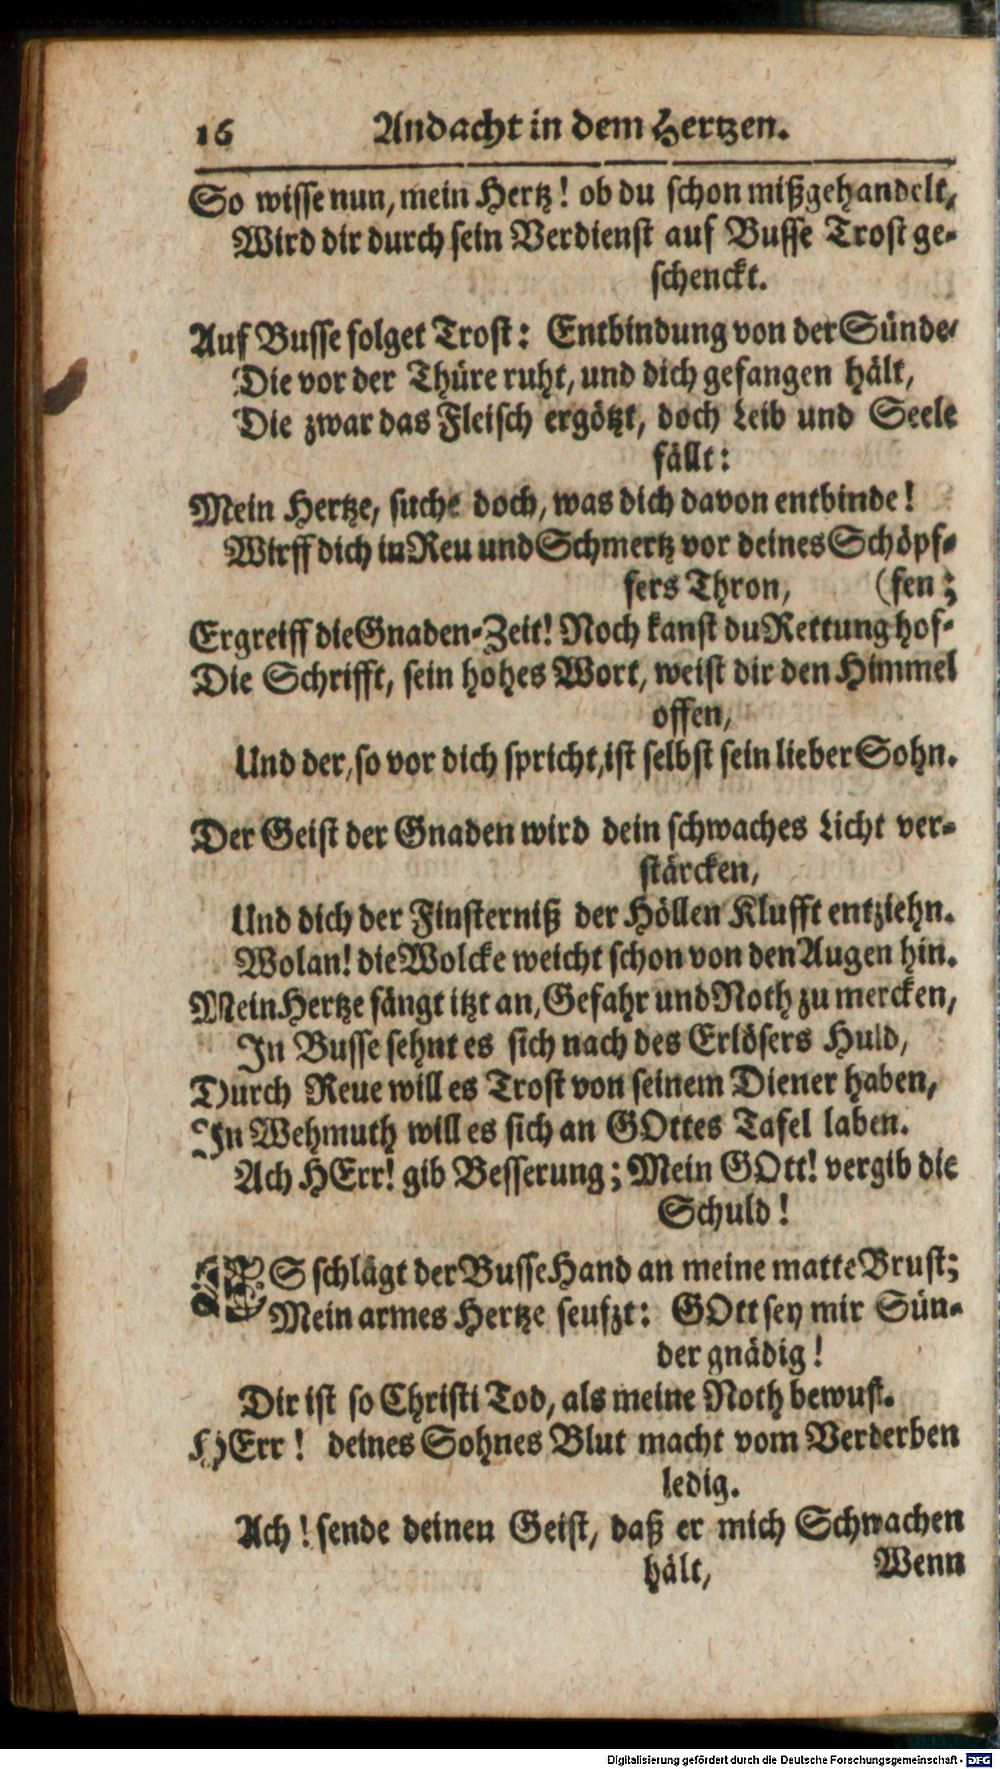 16 Andacht in dem Hertzen.
So wisse nun, mein Hertz! ob du schon mißgehandelt,
Wird dir durch sein Verdienst auf Busse Trost ge-
schenckt.
Auf Busse folget Trost: Entbindung von der Sünde/
Die vor der Thüre ruht, und dich gefangen hält,
Die zwar das Fleisch ergötzt, doch Leib und Seele
fällt:
Mein Hertze, suche doch, was dich davon entbinde!
Wirff dich in Reu und Schmertz vor deines Schöpf-
fers Thron, (fen;
Ergreiff die Gnaden-Zeit! Noch kanst du Rettung hof-
Die Schrifft, sein hohes Wort, weist dir den Himmel
offen,
Und der, so vor dich spricht, ist selbst sein lieber Sohn.
Der Geist der Gnaden wird dein schwaches Licht ver-
stärcken,
Und dich der Finsterniß der Höllen Klufft entziehn.
Wolan! die Wolcke weicht schon von den Augen hin.
Mein Hertze fängt itzt an, Gefahr und Noth zu mercken,
In Busse sehnt es sich nach des Erlösers Huld,
Durch Reue will es Trost von seinem Diener haben,
In Wehmuth will es sich an GOttes Tafel laben.
Ach HErr! gib Besserung; Mein GOtt! vergib die
Schuld!
ES schlägt der Busse Hand an meine matte Brust;
Mein armes Hertze seufzt: GOtt sey mir Sün-
der gnädig!
Dir ist so Christi Tod, als meine Noth bewust.
HErr! deines Sohnes Blut macht vom Verderben
ledig.
Ach! sende deinen Geist, daß er mich Schwachen
hält, Wenn
Digitalisierung gefördert durch die Deutsche Forschungsgemeinschaft - DFG